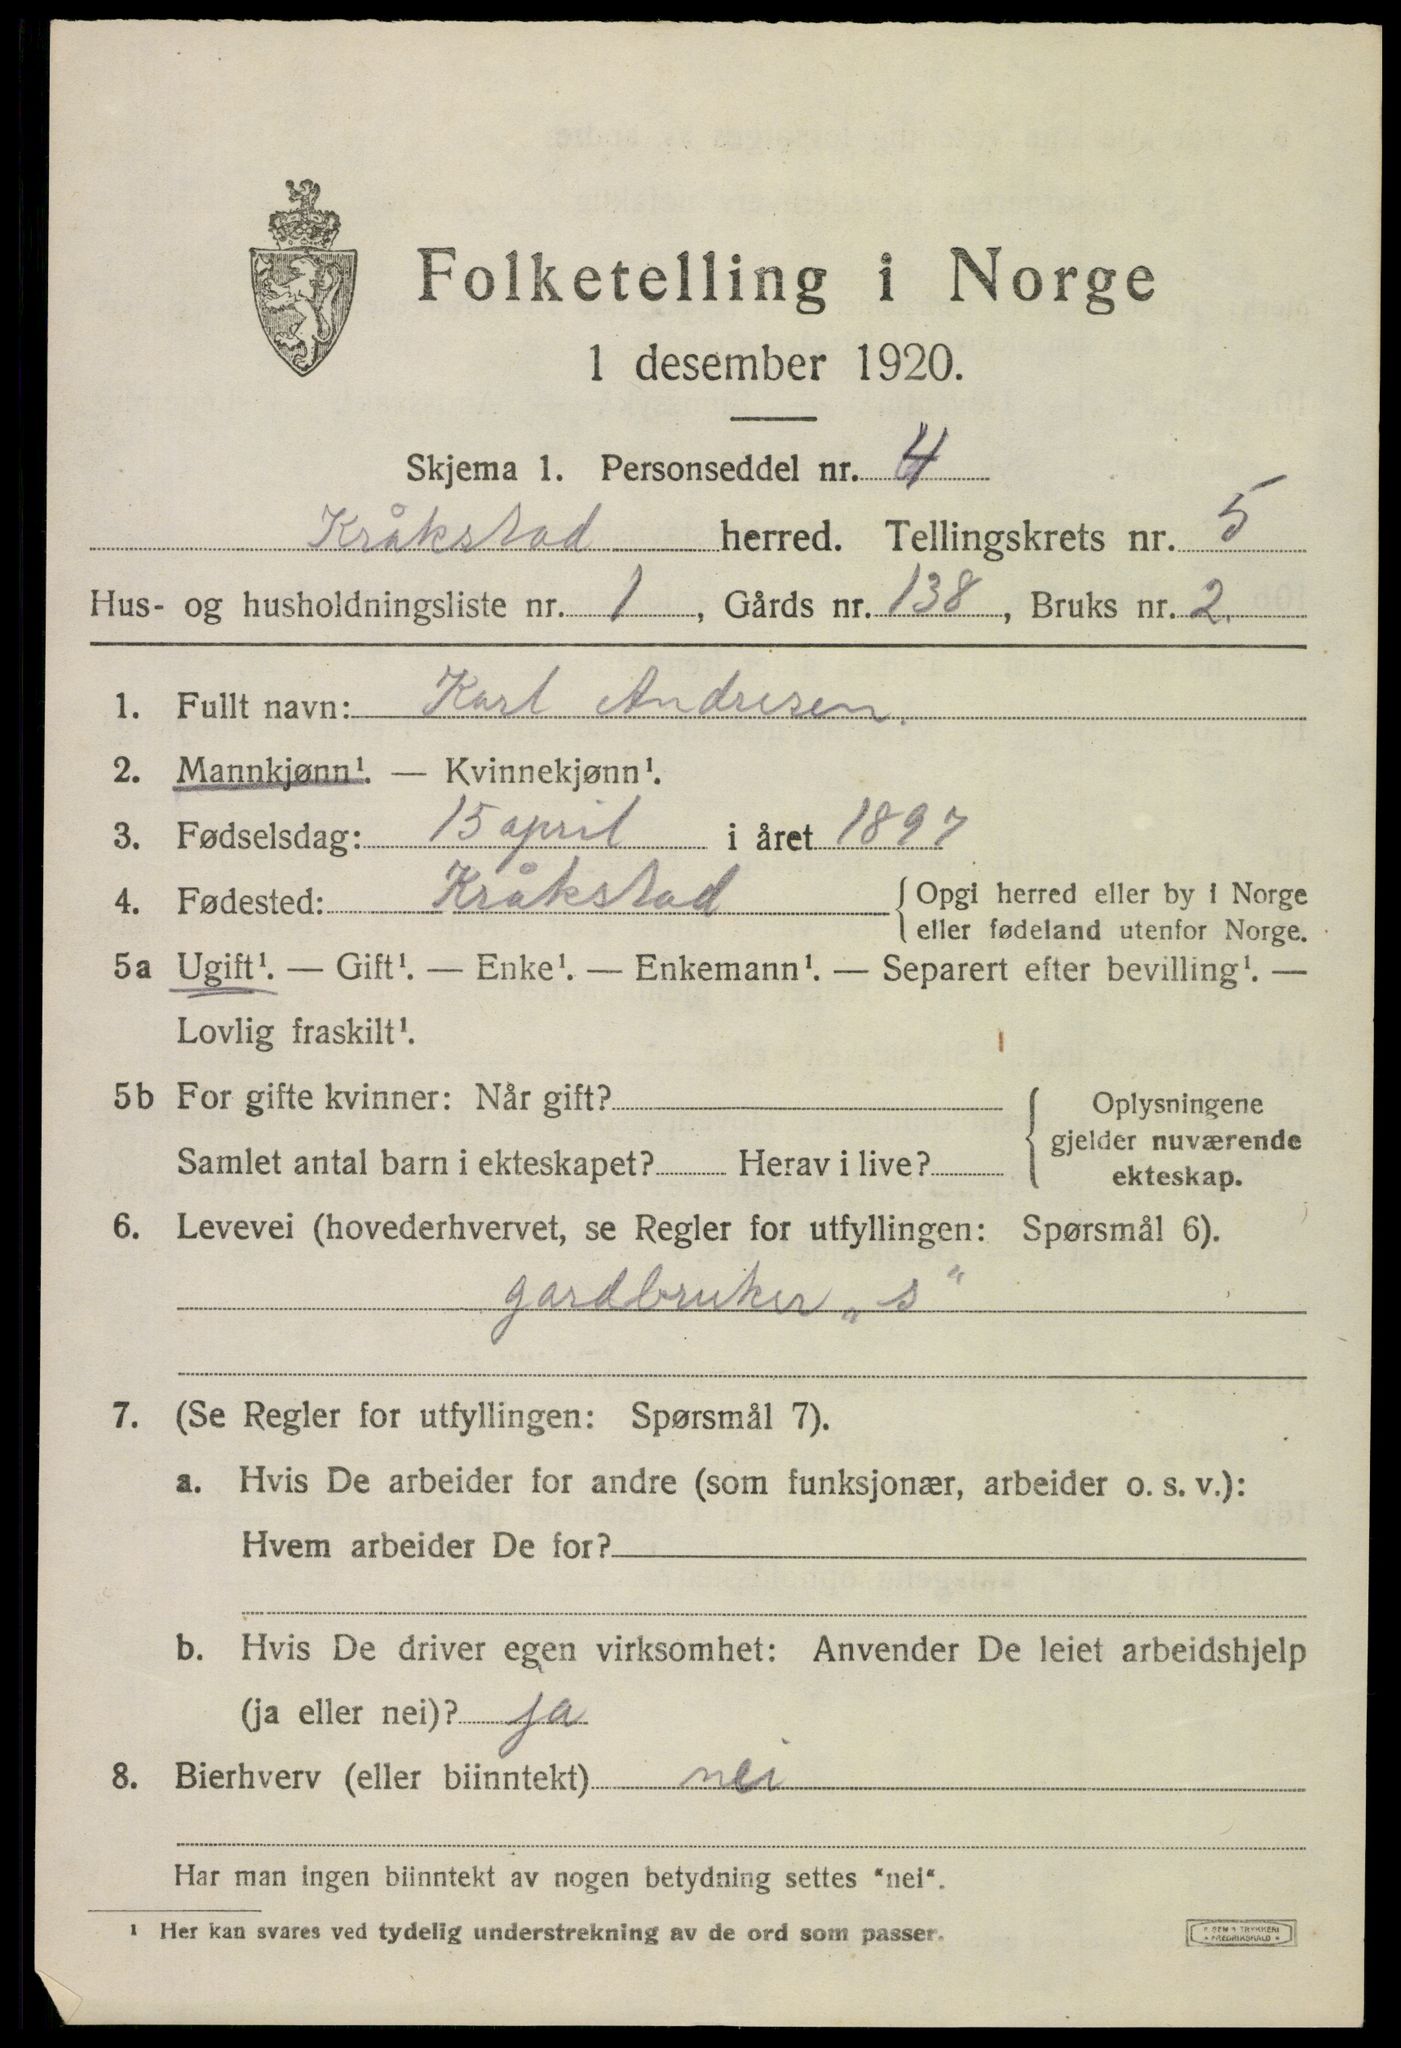 Folketelling i Norge
1 desember 1920.
Skjema 1. Personseddel nr. 4
Kråkstad herred. Tellingskrets nr. 5
Hus- og husholdningsliste nr. 1, Gårds nr. 138, Bruks nr. 2.
1. Fullt navn: Karl Andresen.
2. Mannkjønn¹. — Kvinnekjønn¹.
3. Fødselsdag: 15 april i året 1897
4. Fødested: Kråkstad { Opgi herred eller by i Norge
eller fødeland utenfor Norge.
5a Ugift¹. — Gift¹. — Enke¹. — Enkemann¹. — Separert efter bevilling¹. —
Lovlig fraskilt¹.
5b For gifte kvinner: Når gift?
Samlet antal barn i ekteskapet? Herav i live?
Oplysningene
gjelder nuværende
ekteskap.
6. Levevei (hovederhvervet, se Regler for utfyllingen: Spørsmål 6).
gardbruker „s“
7. (Se Regler for utfyllingen: Spørsmål 7).
a. Hvis De arbeider for andre (som funksjonær, arbeider o. s. v.):
Hvem arbeider De for?
b. Hvis De driver egen virksomhet: Anvender De leiet arbeidshjelp
(ja eller nei)? ja
8. Bierhverv (eller biinntekt) nei
Har man ingen biinntekt av nogen betydning settes “nei“.
¹ Her kan svares ved tydelig understrekning av de ord som passer.
TRYKKERI
FREDRIKSHALD